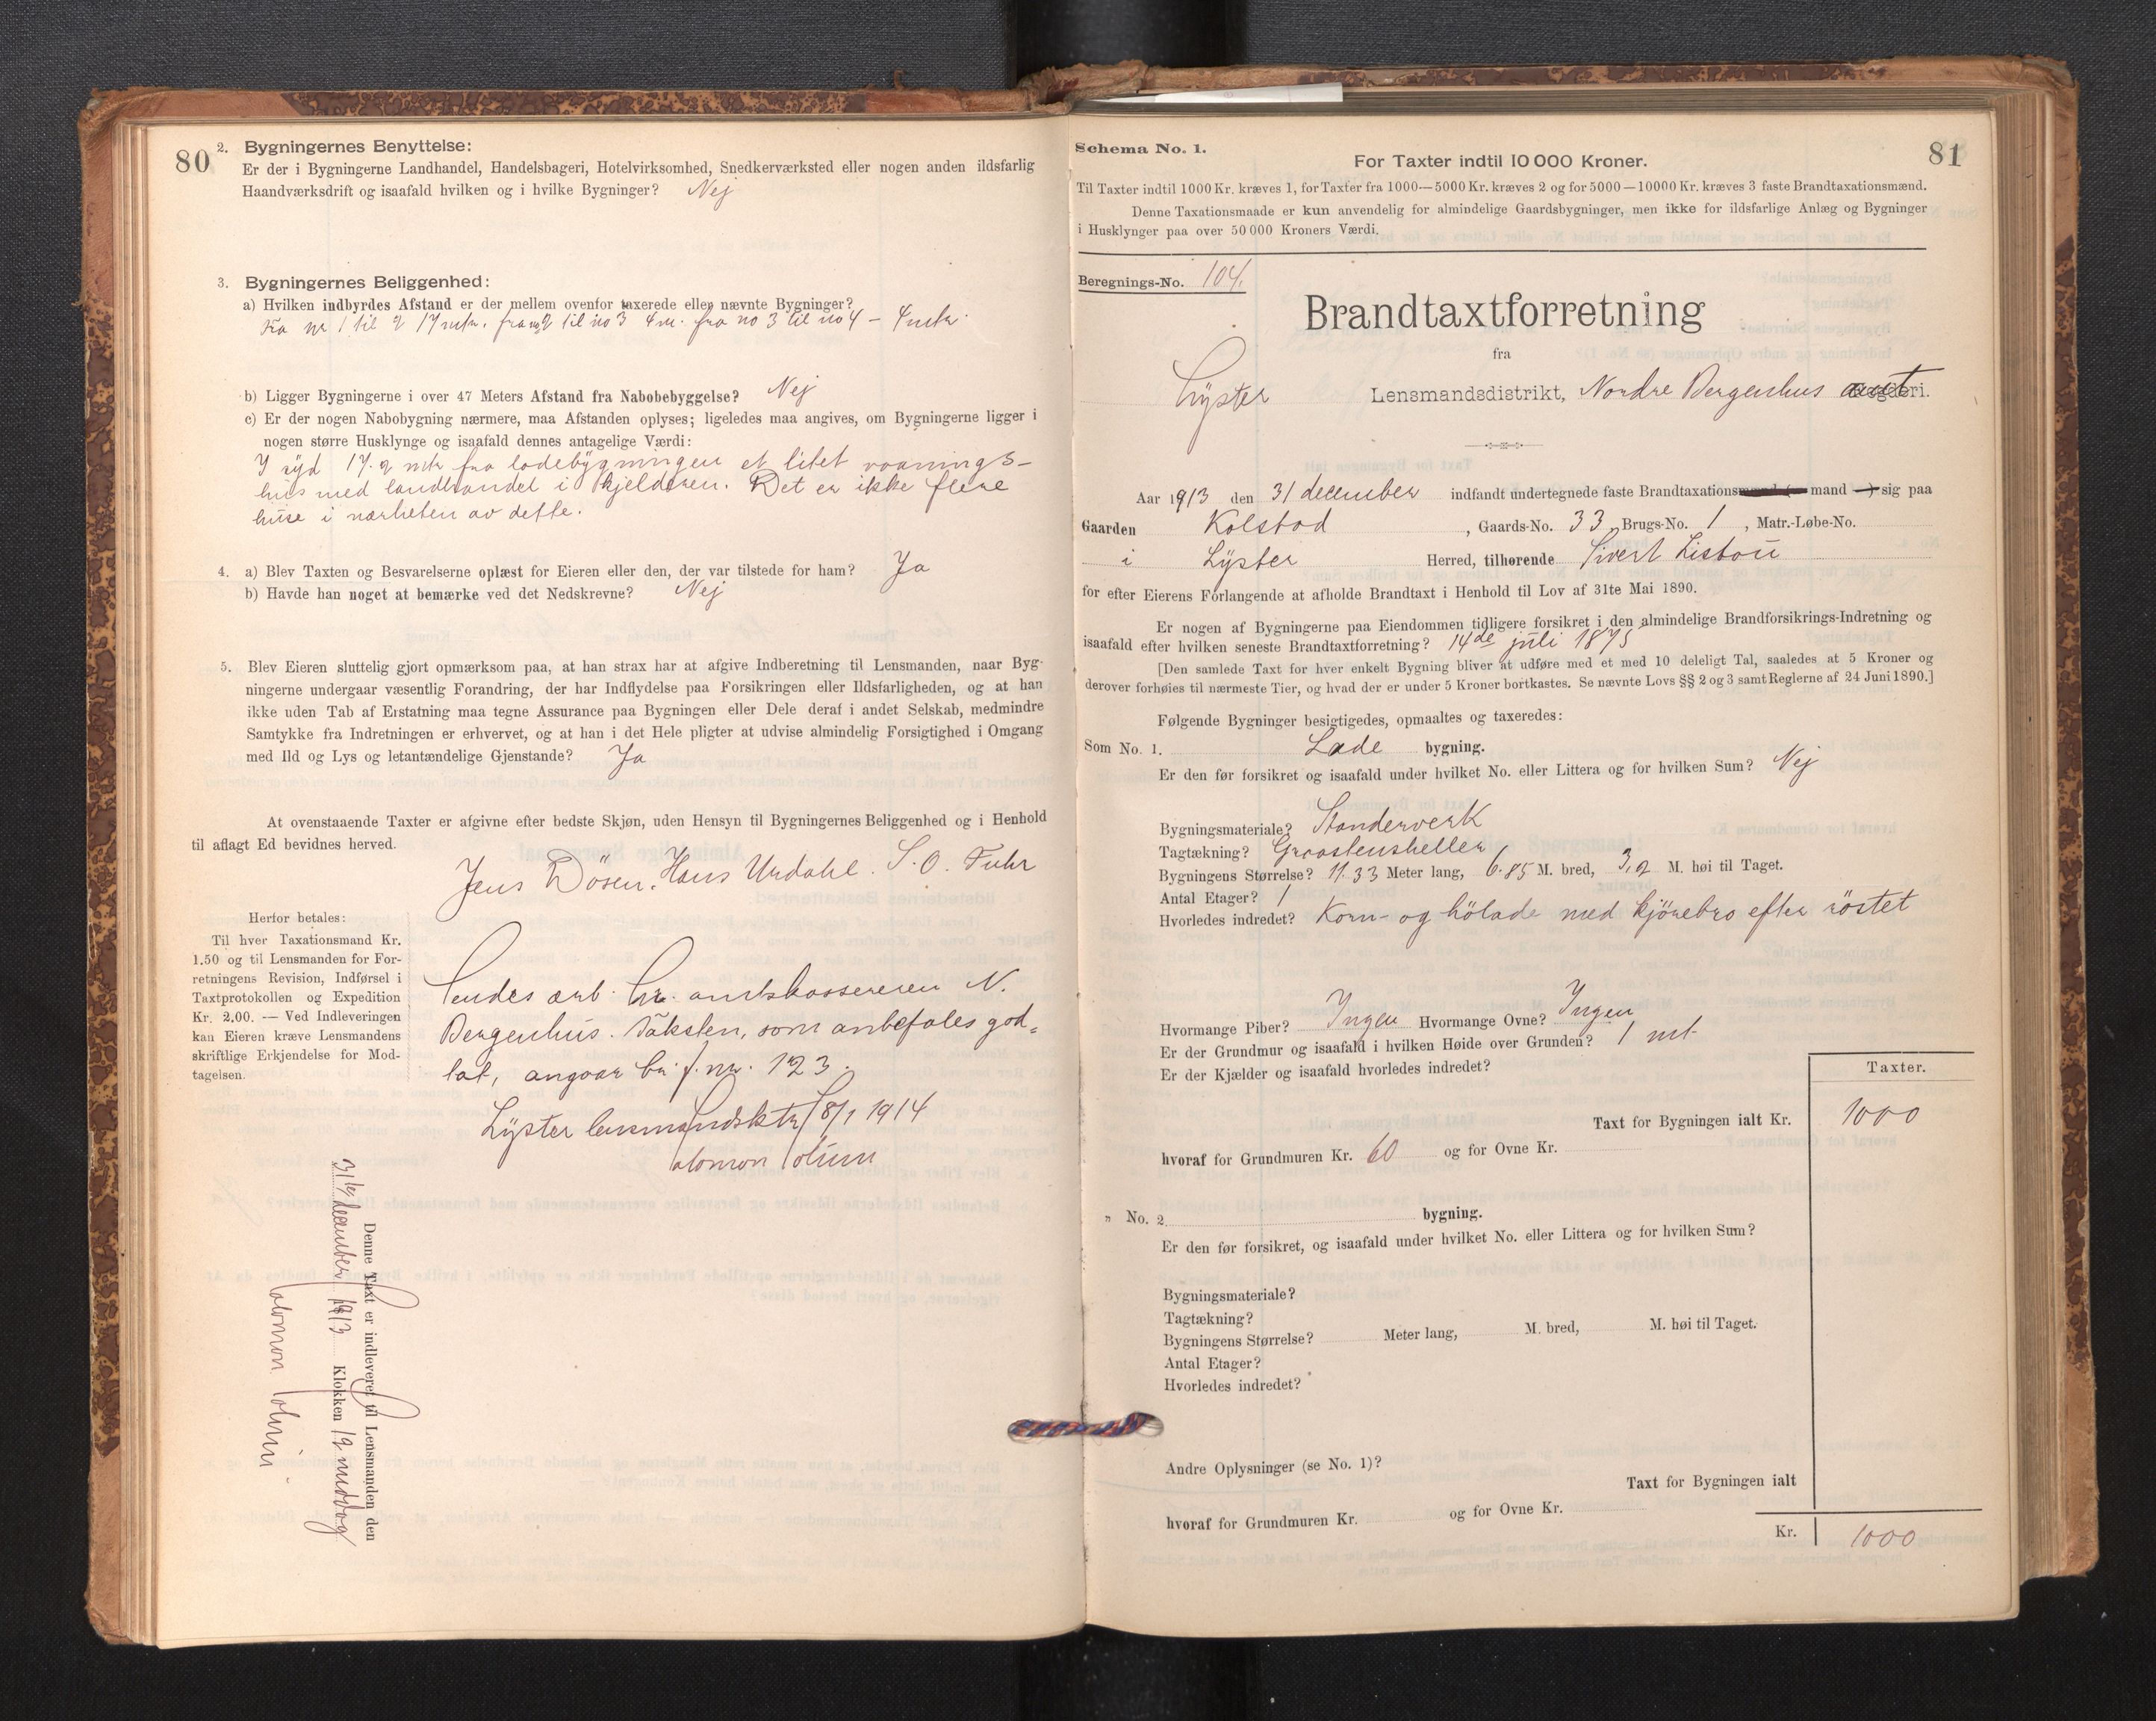 80
2. Bygningernes Benyttelse:
Er der i Bygningerne Landhandel, Handelsbageri, Hotelvirksomhed, Snedkerværksted eller nogen anden ildsfarlig
Haandværksdrift og isaafald hvilken og i hvilke Bygninger? Nej
3. Bygningernes Beliggenhed:
a) Hvilken indbyrdes Afstand er der mellem ovenfor taxerede eller nævnte Bygninger?
Fra nr 1 til 2 17 mtr. fra no 2 til no 3 4 m. fra no 3 til no 4 – 4 mtr.
b) Ligger Bygningerne i over 47 Meters Afstand fra Nabobebyggelse? Nej
c) Er der nogen Nabobygning nærmere, maa Afstanden oplyses; ligeledes maa angives, om Bygningerne ligger i
nogen større Husklynge og isaafald dennes antagelige Værdi:
I syd 17.2 mtr fra ladebygningen et litet vaanings-
hus med landhandel i kjelderen. Det er ikke flere
huse i nærheten av dette.
4. a) Blev Taxten og Besvarelserne oplæst for Eieren eller den, der var tilstede for ham? Ja
b) Havde han noget at bemærke ved det Nedskrevne? Nej
5. Blev Eieren sluttelig gjort opmærksom paa, at han strax har at afgive Indberetning til Lensmanden, naar Byg-
ningerne undergaar væsentlig Forandring, der har Indflydelse paa Forsikringen eller Ildsfarligheden, og at han
ikke uden Tab af Erstatning maa tegne Assurance paa Bygningen eller Dele deraf i andet Selskab, medmindre
Samtykke fra Indretningen er erhvervet, og at han i det Hele pligter at udvise almindelig Forsigtighed i Omgang
med Ild og Lys og letantændelige Gjenstande? Ja
At ovenstaaende Taxter er afgivne efter bedste Skjøn, uden Hensyn til Bygningernes Beliggenhed og i Henhold
til aflagt Ed bevidnes herved.
Jens Døsen. Hans Urdahl. S. O. Fuhr
Herfor betales:
Til hver Taxationsmand Kr.
1.50 og til Lensmanden for For-
retningens Revision, Indførsel i
Taxtprotokollen og Expedition
Kr. 2.00. — Ved Indleveringen
kan Eieren kræve Lensmandens
skriftlige Erkjendelse for Mod-
tagelsen.
Sendes ærb. hr. amtskassereren N.
Bergenhus. Taksten, som anbefales god-
tat, angaar br.f. nr. 123.
Lyster lensmandsktr 8/1 1914
Salomon Solum
Denne Taxt er indleveret til Lensmanden den
31te december 1913 Klokken 12 middag
Salomon Solum
81
Schema No. 1.
For Taxter indtil 10 000 Kroner.
Til Taxter indtil 1000 Kr. kræves 1, for Taxter fra 1000—5000 Kr. kræves 2 og for 5000—10000 Kr. kræves 3 faste Brandtaxationsmænd.
Denne Taxationsmaade er kun anvendelig for almindelige Gaardsbygninger, men ikke for ildsfarlige Anlæg og Bygninger
i Husklynger paa over 50 000 Kroners Værdi.
Beregnings-No. 104.
Brandtaxtforretning
fra
Lyster Lensmandsdistrikt, Nordre Bergenhus amt
Aar 1913 den 31 december indfandt undertegnede faste Brandtaxations mand sig paa
Gaarden Kolstad, Gaards-No. 33 Brugs-No. 1, Matr.-Løbe-No.
i Lyster Herred, tilhørende Sivert Listou
for efter Eierens Forlangende at afholde Brandtaxt i Henhold til Lov af 31te Mai 1890.
Er nogen af Bygningerne paa Eiendommen tidligere forsikret i den almindelige Brandforsikrings-Indretning og
isaafald efter hvilken seneste Brandtaxtforretning? 14de juli 1875
[Den samlede Taxt for hver enkelt Bygning bliver at udføre med et med 10 deleligt Tal, saaledes at 5 Kroner og
derover forhøies til nærmeste Tier, og hvad der er under 5 Kroner bortkastes. Se nævnte Lovs §§ 2 og 3 samt Reglerne af 24 Juni 1890.]
Følgende Bygninger besigtigedes, opmaaltes og taxeredes:
Som No. 1. Lade bygning.
Er den før forsikret og isaafald under hvilket No. eller Littera og for hvilken Sum? Nej
Bygningsmateriale? Standerverk
Tagtækning? Graastensheller
Bygningens Størrelse? 11.33 Meter lang, 6.85 M. bred, 3,2 M. høi til Taget.
Antal Etager? 1
Hvorledes indredet? Korn- og hölade med kjörebro efter röstet
Hvormange Piber? Ingen Hvormange Ovne? Ingen
Er der Grundmur og isaafald i hvilken Høide over Grunden? 1 mt
Er der Kjælder og isaafald hvorledes indredet?
Taxter.
Taxt for Bygningen ialt Kr. 1000
hvoraf for Grundmuren Kr. 60 og for Ovne Kr.
" No. 2 bygning.
Er den før forsikret, og isaafald under hvilket No. eller Littera og for hvilken Sum?
Bygningsmateriale?
Tagtækning?
Bygningens Størrelse? Meter lang, M. bred, M. høi til Taget.
Antal Etager?
Hvorledes indredet?
Andre Oplysninger (se No. 1)?
Taxt for Bygningen ialt
hvoraf for Grundmuren Kr. og for Ovne Kr.
Kr. 1000